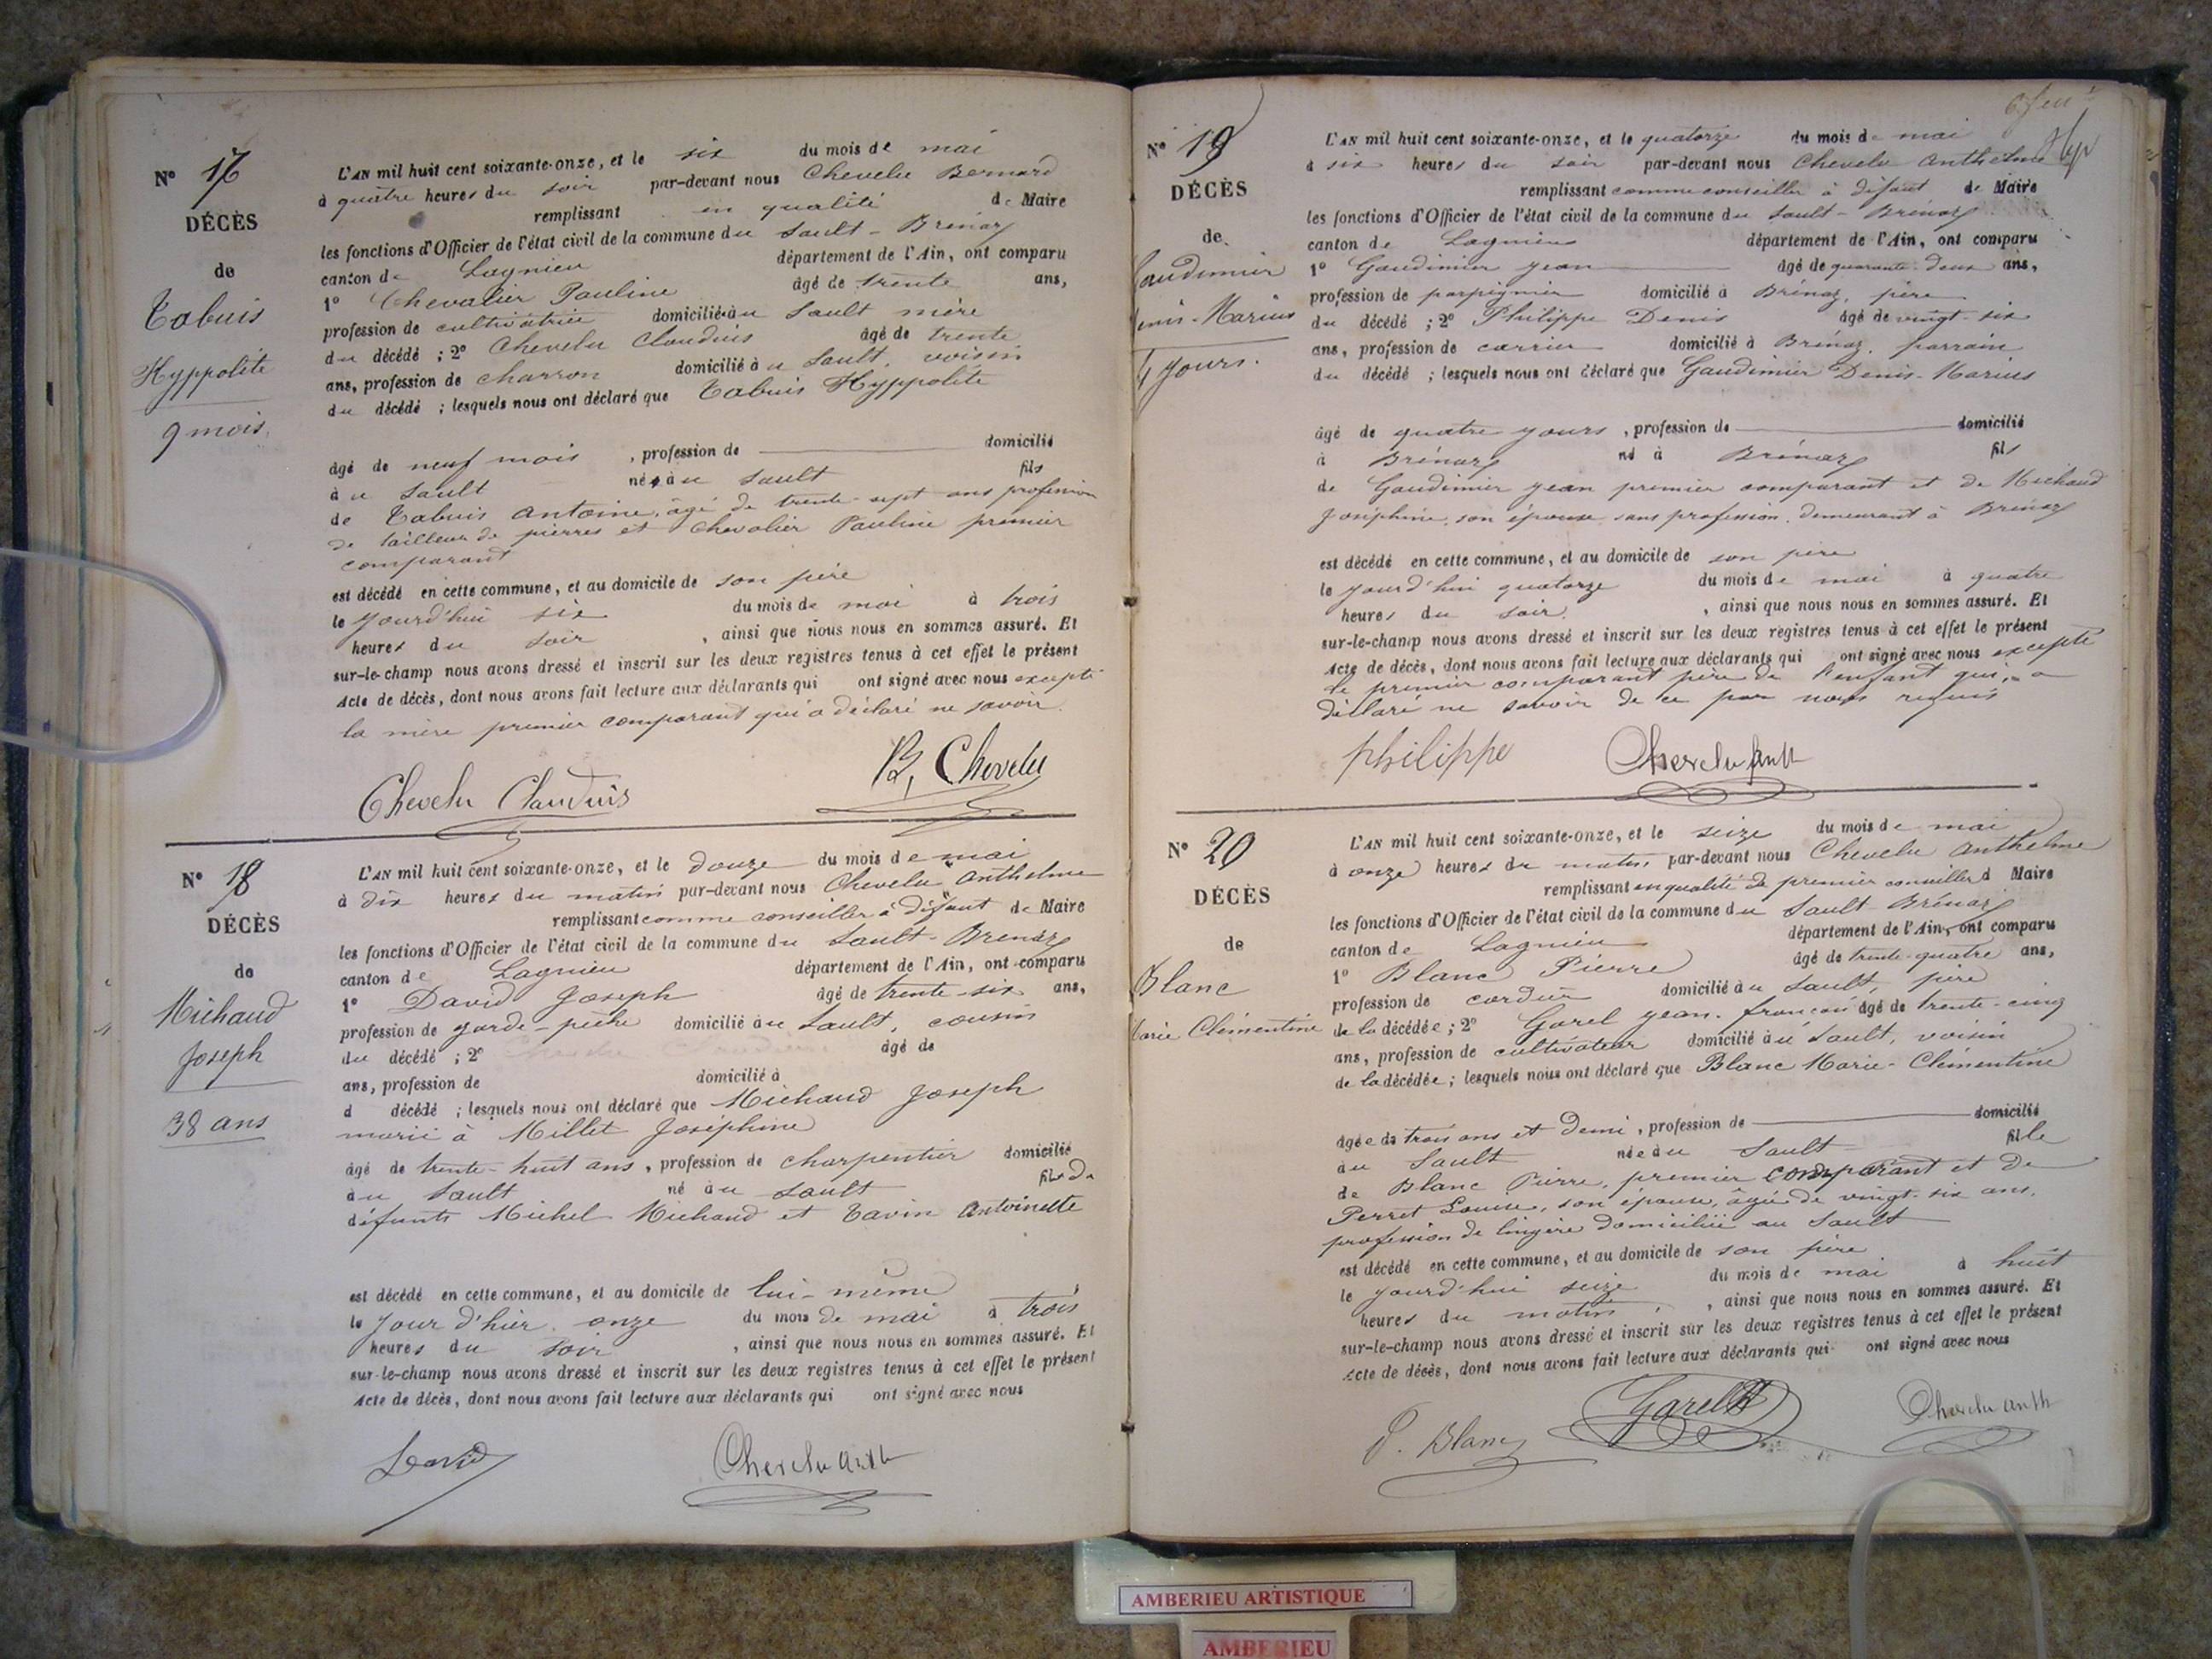 N° 17
DÉCÈS
de
Tabuis
Hyppolite
9 mois
L'AN mil huit cent soixante-onze, et le six du mois de mai
à quatre heures du soir par-devant nous Chevelu Bernard
remplissant en qualité de Maire
les fonctions d'Officier de l'état civil de la commune du Sault-Brénaz
canton de Lagnieu département de l'Ain, ont comparu
1° Chevalier Pauline âgé de trente ans,
profession de cultivatrice domicilié au Sault mère
du décédé ; 2° Chevelu Claudius âgé de trente
ans, profession de charron domicilié au Sault, voisin
du décédé ; lesquels nous ont déclaré que Tabuis Hyppolite
âgé de neuf mois, profession de domicilié
au Sault né au Sault fils
de Tabuis Antoine, âgé de trente-sept ans profession
de tailleur de pierres et Chevalier Pauline premier
comparant
est décédé en cette commune, et au domicile de son père
le jourd'hui six du mois de mai à trois
heures du soir, ainsi que nous nous en sommes assuré. Et
sur-le-champ nous avons dressé et inscrit sur les deux registres tenus à cet effet le présent
Acte de décès, dont nous avons fait lecture aux déclarants qui ont signé avec nous excepté
la mère premier comparant qui a déclaré ne savoir.
Chevelu Claudius B, Chevelu
N° 18
DÉCÈS
de
Michaud
Joseph
38 ans
L'AN mil huit cent soixante-onze, et le douze du mois de mai
à dix heures du matin par-devant nous Chevelu Anthelme
remplissant comme conseiller à défaut de Maire
les fonctions d'Officier de l'état civil de la commune du Sault-Brénaz
canton de Lagnieu département de l'Ain, ont comparu
1° David Joseph âgé de trente-six ans,
profession de garde-pêche domicilié au Sault, cousin
du décédé ; 2° âgé de
ans, profession de domicilié à
d décédé ; lesquels nous ont déclaré que Michaud Joseph
marié à Millet Joséphine
âgé de trente-huit ans, profession de charpentier domicilié
au Sault né au Sault fils de
défunts Michel Michaud et Tavin Antoinette
est décédé en cette commune, et au domicile de lui-même
le jour d'hier onze du mois de mai à trois
heures du soir, ainsi que nous nous en sommes assuré. Et
sur-le-champ nous avons dressé et inscrit sur les deux registres tenus à cet effet le présent
Acte de décès, dont nous avons fait lecture aux déclarants qui ont signé avec nous
David Chevelu Anth
N° 19
DÉCÈS
de
Gaudimier
Denis-Marius
4 jours.
L'AN mil huit cent soixante-onze, et le quatorze du mois de mai
à six heures du soir par-devant nous Chevelu Anthelme
remplissant comme conseiller à défaut de Maire
les fonctions d'Officier de l'état civil de la commune du Sault-Brénaz
canton de Lagnieu département de l'Ain, ont comparu
1° Gaudimier Jean âgé de quarante-deux ans,
profession de domicilié à Brénaz, père
du décédé ; 2° Philippe Denis âgé de vingt-six
ans, profession de carrier domicilié à Brénaz, parrain
du décédé ; lesquels nous ont déclaré que Gaudimier Denis-Marius
âgé de quatre jours, profession de domicilié
à Brénaz né à Brénaz fils
de Gaudimier Jean premier comparant et de Michaud
Joséphine, son épouse sans profession, demeurant à Brénaz
est décédé en cette commune, et au domicile de son père
le jourd'hui quatorze du mois de mai à quatre
heures du soir, ainsi que nous nous en sommes assuré. Et
sur-le-champ nous avons dressé et inscrit sur les deux registres tenus à cet effet le présent
Acte de décès, dont nous avons fait lecture aux déclarants qui ont signé avec nous excepté
le premier comparant père de l'enfant qui a
déclaré ne savoir de ce par nous requis
Philippe Chevelu Anth
N° 20
DÉCÈS
de
Blanc
Marie Clémentine
L'AN mil huit cent soixante-onze, et le seize du mois de mai
à onze heures du matin par-devant nous Chevelu Anthelme
remplissant en qualité de premier conseiller d Maire
les fonctions d'Officier de l'état civil de la commune du Sault Brénaz
canton de Lagnieu département de l'Ain, ont comparu
1° Blanc Pierre âgé de trente-quatre ans,
profession de domicilié au Sault, père
de la décédée ; 2° Garel Jean-françois âgé de trente-cinq
ans, profession de cultivateur domicilié au Sault, voisin
de la décédée ; lesquels nous ont déclaré que Blanc Marie-Clémentine
âgée de trois ans et demi, profession de domicilié
au Sault née au Sault fille
de Blanc Pierre, premier comparant et de
Perret Louise, son épouse, âgée de vingt-six ans,
profession de lingère domiciliée au Sault
est décédé en cette commune, et au domicile de son père
le jourd'hui seize du mois de mai à huit
heures du matin, ainsi que nous nous en sommes assuré. Et
sur-le-champ nous avons dressé et inscrit sur les deux registres tenus à cet effet le présent
Acte de décès, dont nous avons fait lecture aux déclarants qui ont signé avec nous
P. Blanc Garel Chevelu Anth
AMBERIEU ARTISTIQUE
AMBERIEU